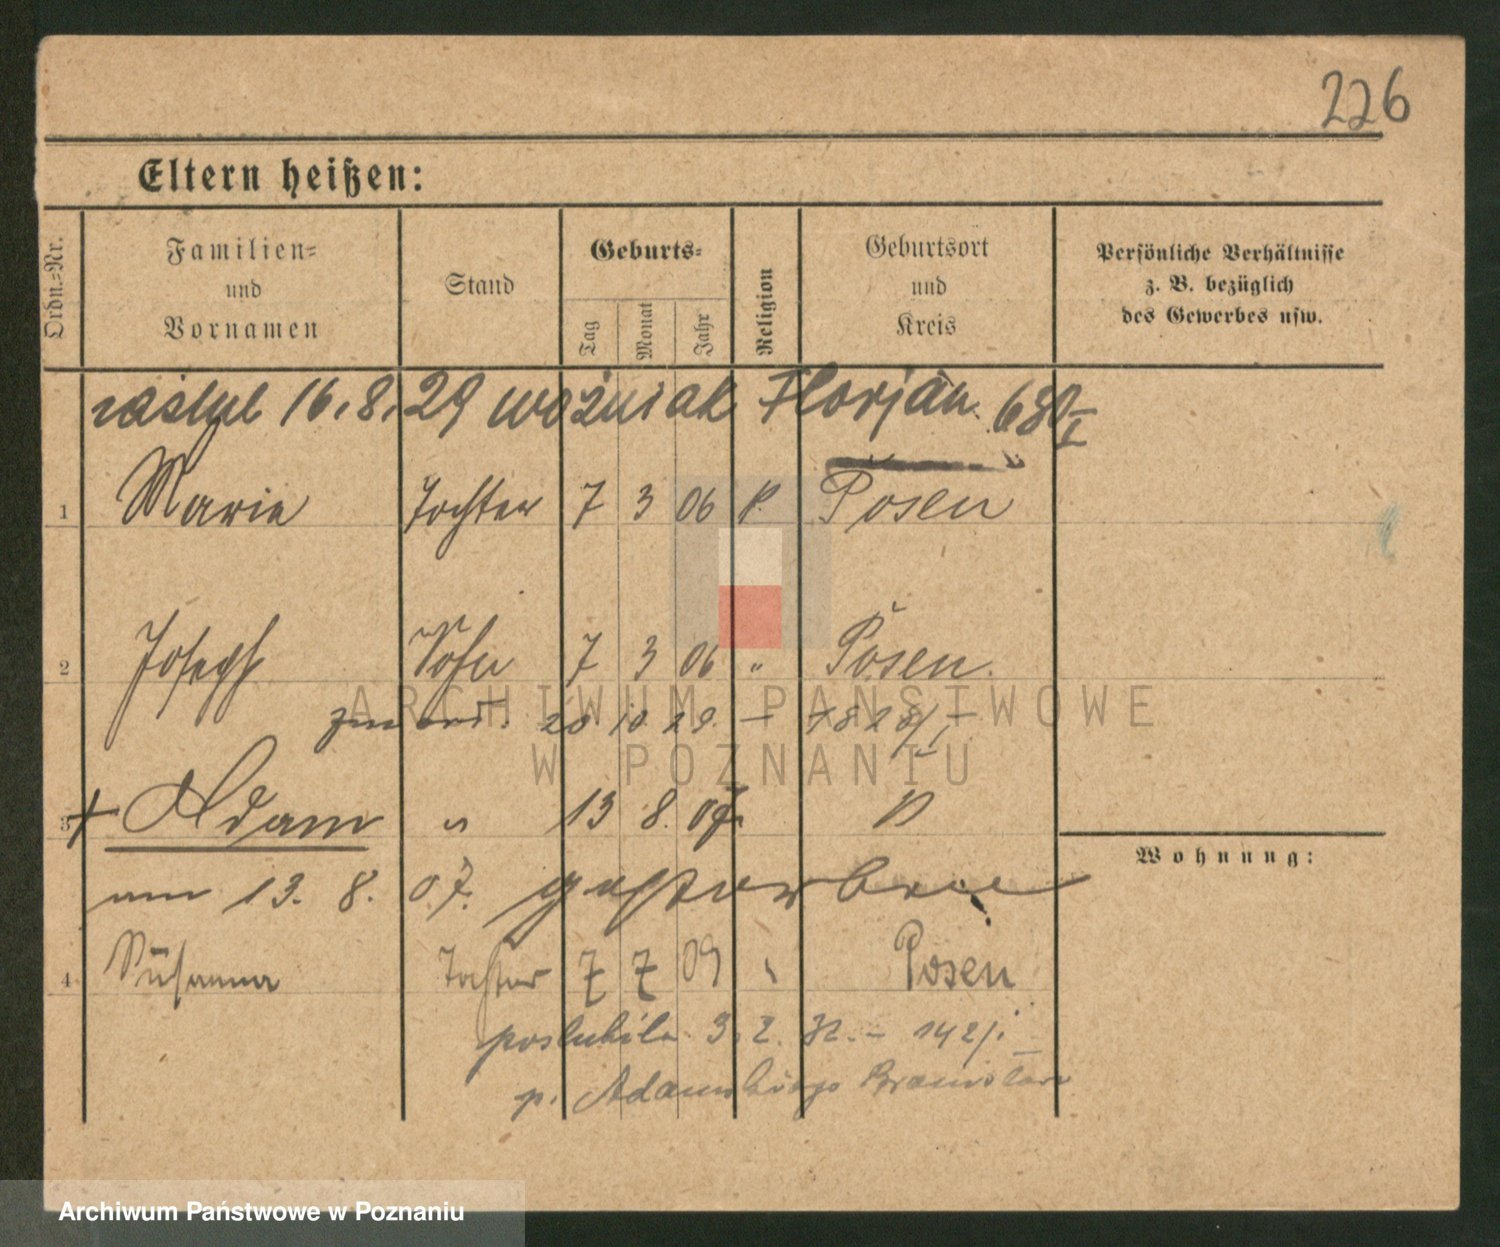 226
Eltern heißen:
Ordn.=Nr.
Familien=
und
Vornamen
Stand
Geburts=
Tag
Monat
Jahr
Religion
Geburtsort
und
Kreis
Persönliche Verhältnisse
z. B. bezüglich
des Gewerbes usw.
16.8.29 woźniak Florjan 680/I
1 Marie Tochter 7 3 06 k. Posen
2 Joseph Sohn 7 3 06 " Posen.
20 10 29. – 1828/I
3 + Adam " 13 8. 07.
am 13. 8. 07. gestorben
Wohnung:
4 Susanna Tochter 7 7 09 Posen
poslubila 3. 2. 32. – 142/I
p. Adamskiego Bronisława
ARCHIWUM PAŃSTWOWE
W POZNANIU
Archiwum Państwowe w Poznaniu